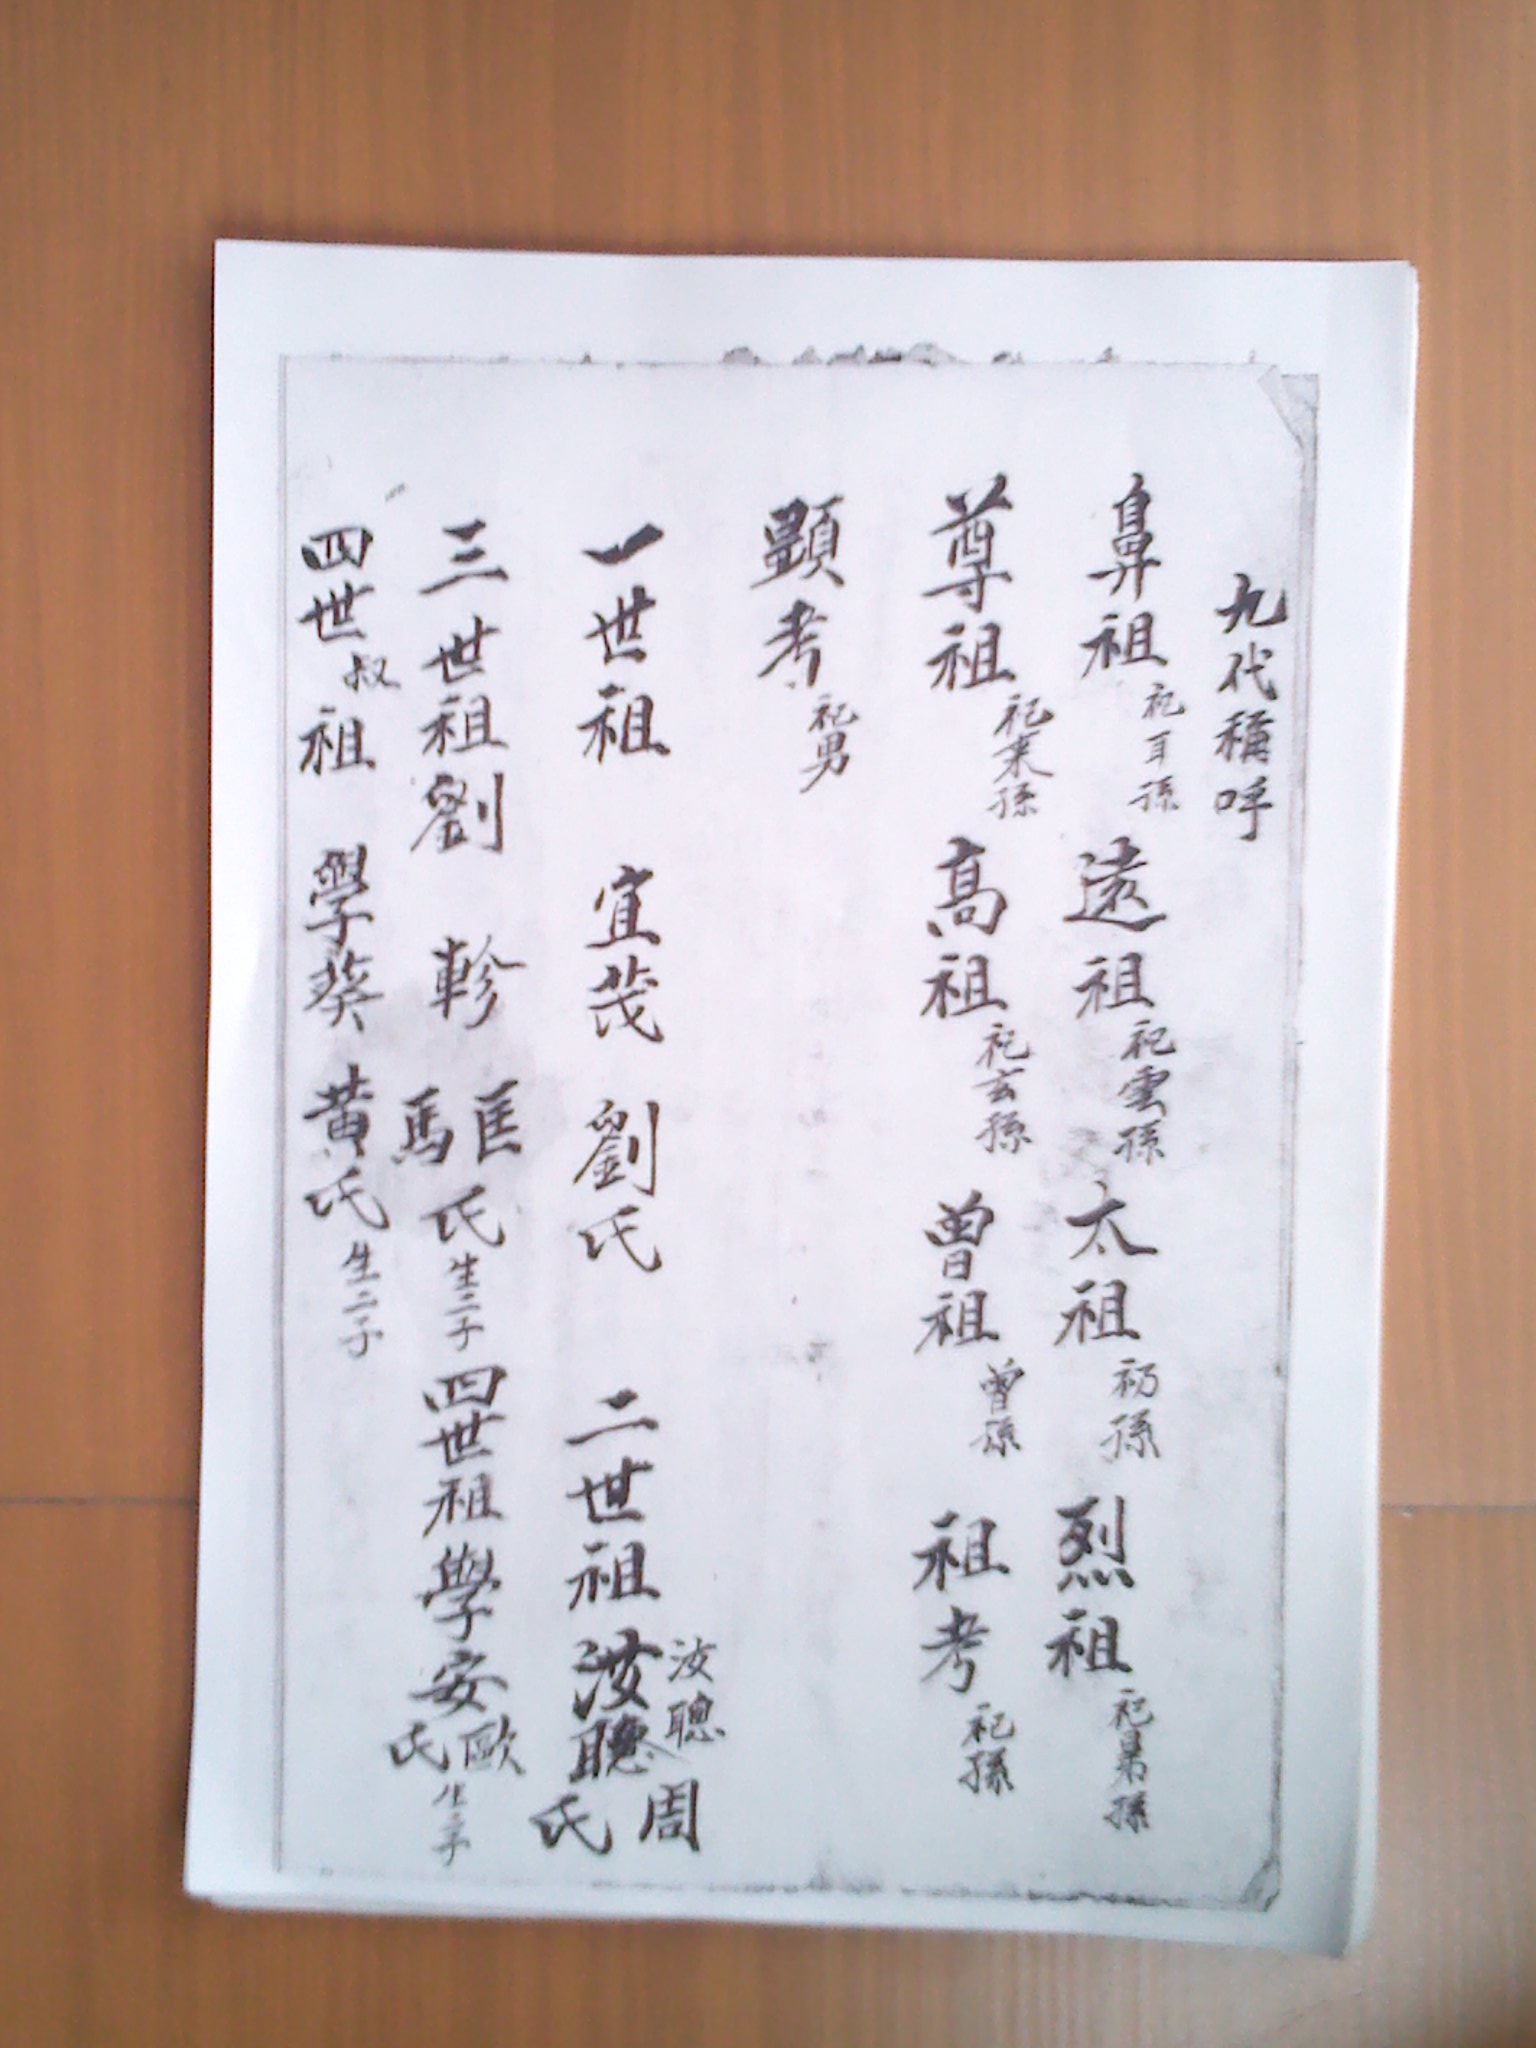 九代稱呼
鼻祖 祀耳孫 遠祖 祀雲孫 太祖 礽孫 烈祖 祀晜孫
尊祖 祀來孫 高祖 祀玄孫 曾祖 曾孫 祖考 祀孫
顯考 祀男
一世祖 宜茂 劉氏 二世祖 汝聰 汝聰 周氏
三世祖劉 軫 匡氏 生二子 四世祖學安歐氏
四世叔祖 學葵 黃氏 生二子